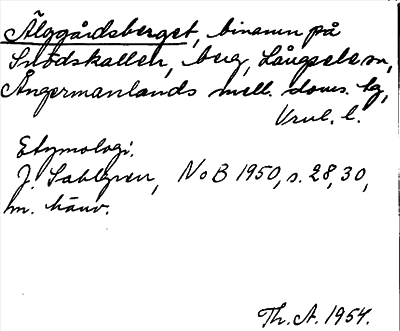 Älggårdsberget, binamn på
Snödskallen, berg, Långsele sn,
Ångermanlands mell. doms. tg,
Vnul. l.
Etymologi.
J. Sahlgren, NoB 1950, s. 28, 30,
m. hänv.
Th. A. 1954.